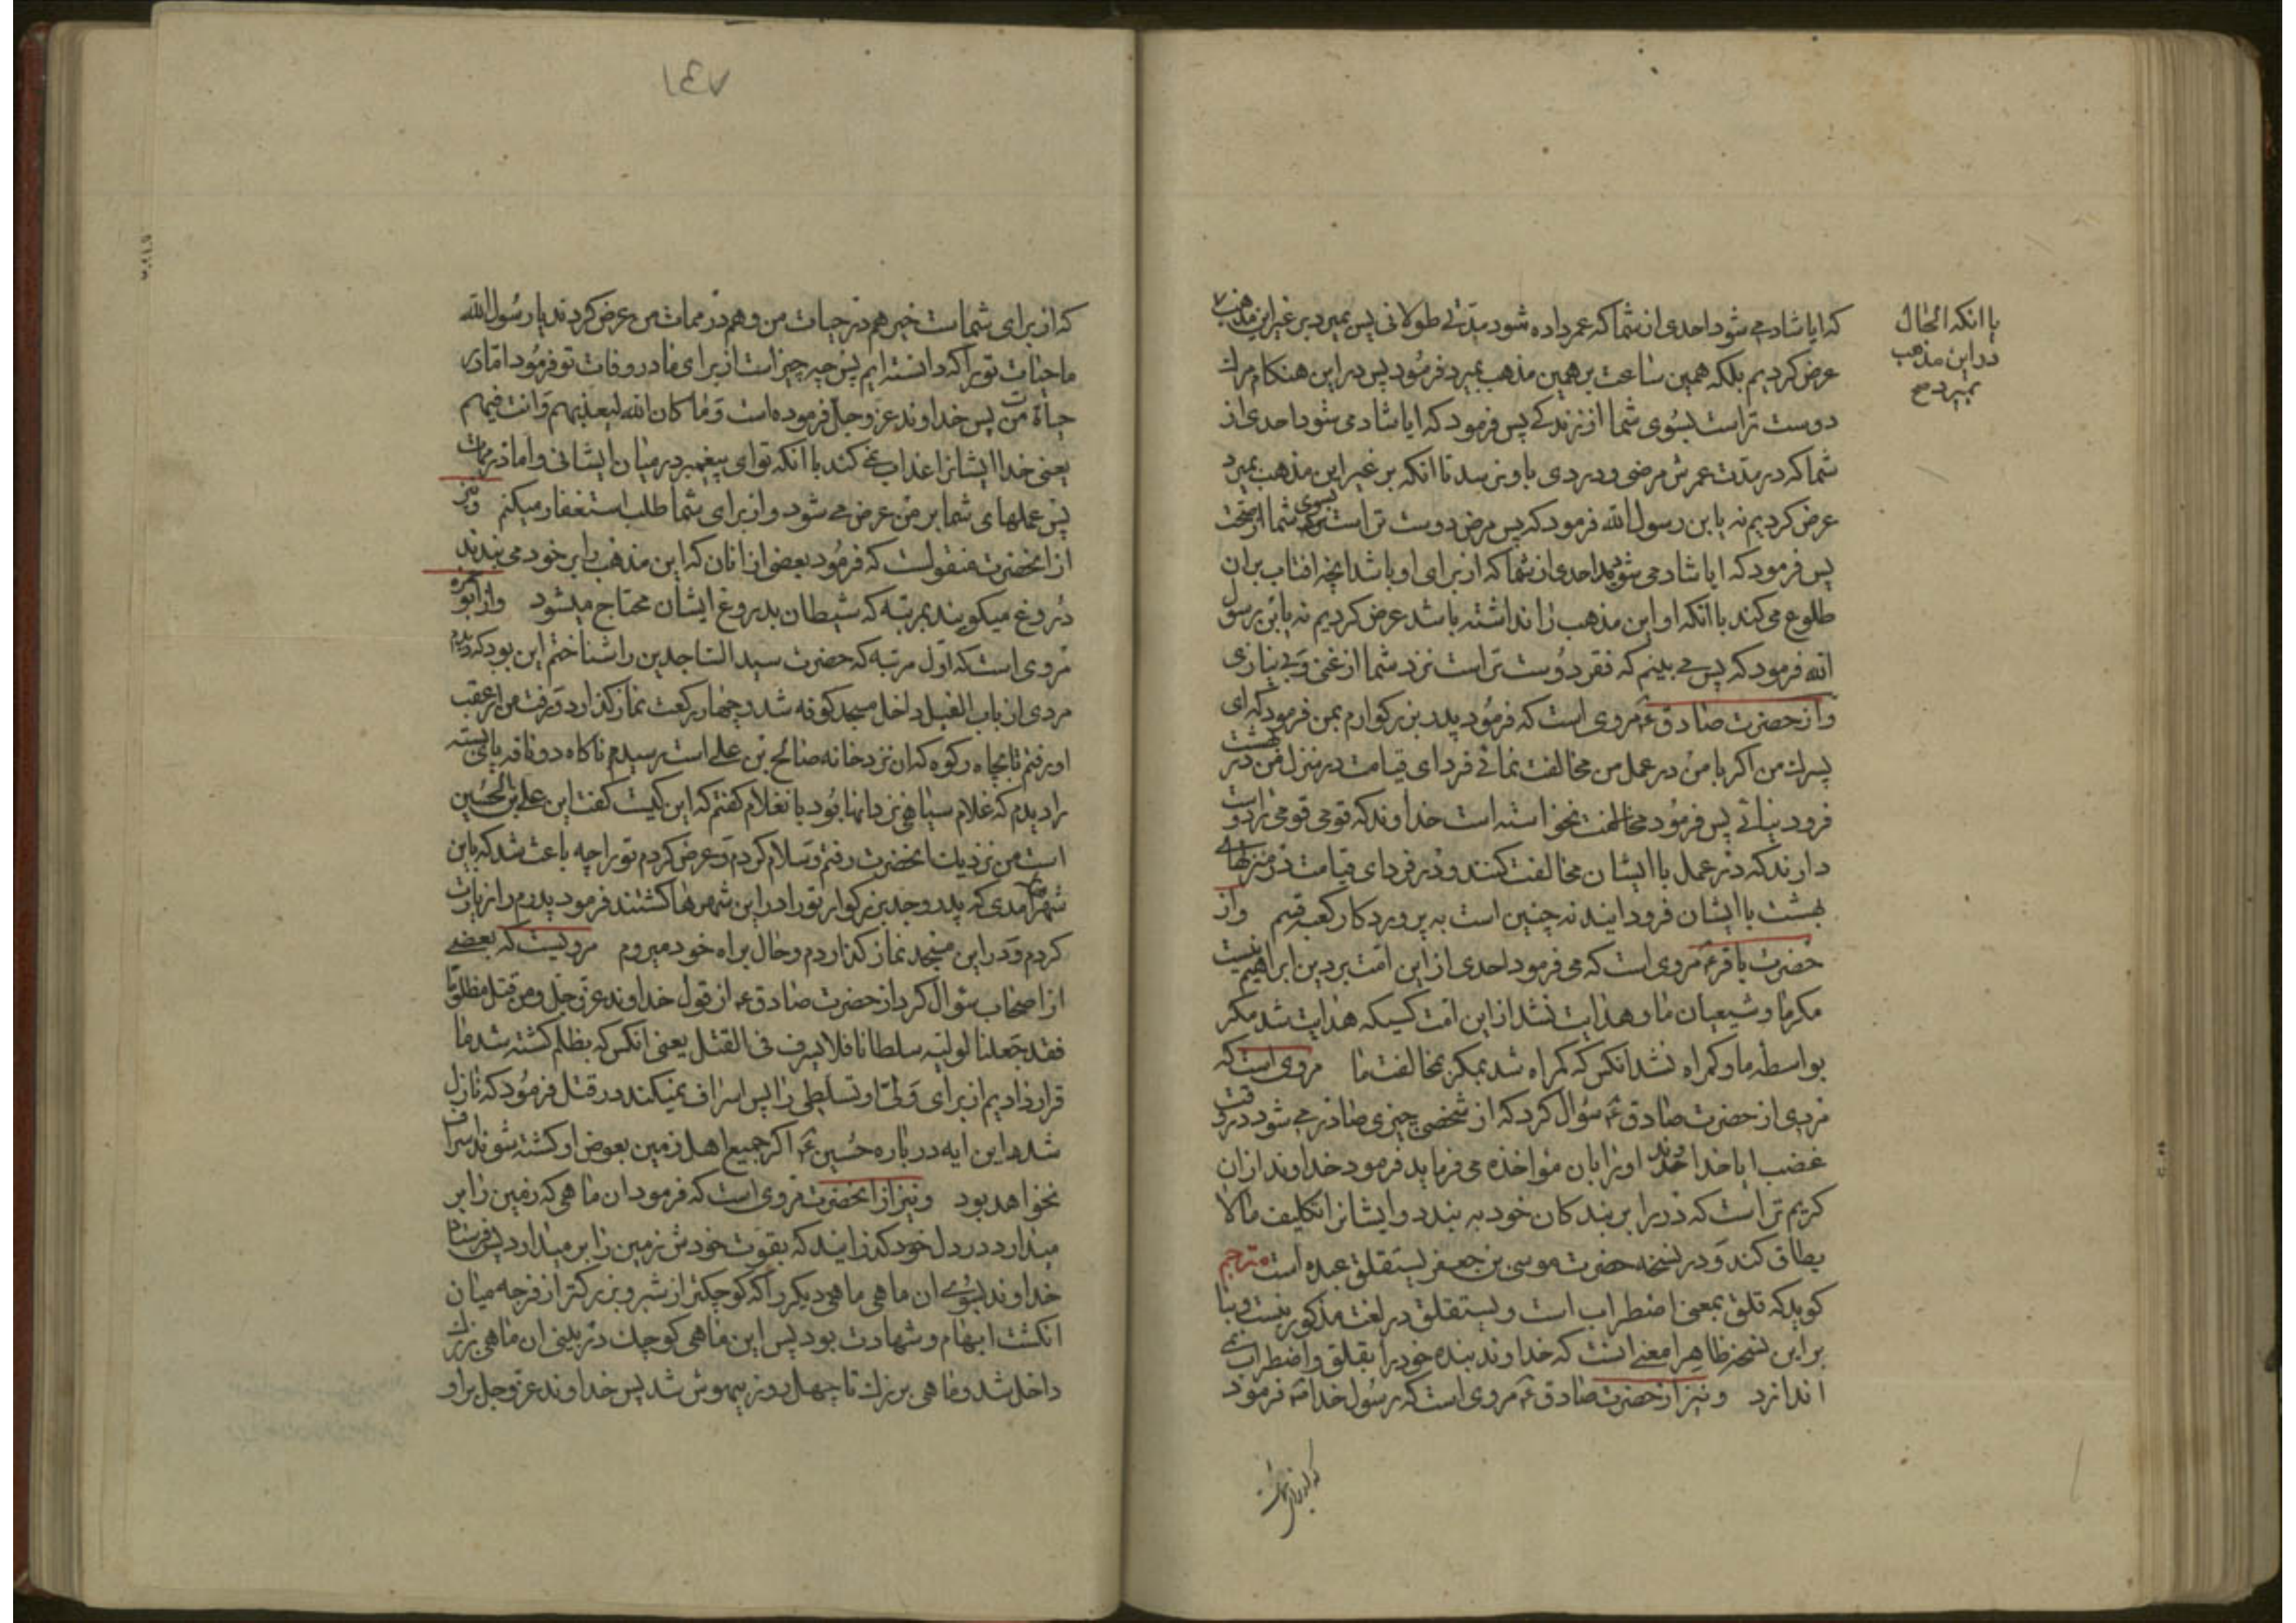 که ایا شاد می شود احدی از شما که عمر داده شود مدتی طولانی پس بمیرد بر غیر این مذهب
عرض کردیم بلکه همین ساعت بر همین مذهب بمیرد فرمود پس در این هنکام مرك
دوست تر است بسوی شما از زندکی پس فرمود که ایا شاد می شود احدی از
شما که در مدت عمرش مرضی و دردی باو نرسد تا انکه بر غیر این مذهب بمیرد
عرض کردیم نه یا بن رسول الله فرمود که پس مرض دوست تر است بسوی شما از صحت
پس فرمود که ایا شاد می شود احدی از شما که از برای او باشد انچه افتاب بر ان
طلوع می کند با انکه او این مذهب را نداشته باشد عرض کردیم نه یا بن رسول
الله فرمود که پس می بینم که فقر دوست تر است نزد شما از غنی و بی نیازی
و از حضرت صادق ع مروی است که فرمود پدر بزرکوارم بمن فرمود که ای
پسرك من اکر با من در عمل من مخالفت نمائی فردای قیامت در منزل من در بهشت
فرود نیائی پس فرمود مخالفت نخواسته است خداوند که قومی قومی را دوست
دارند که در عمل با ایشان مخالفت کنند و در فردای قیامت در منزلهای
بهشت با ایشان فرود ایند نه چنین است به پروردکار کعبه قسم و از
حضرت باقر ع مروی است که می فرمود احدی از این امت بر دین ابراهیم نیست
مکر ما و شیعیان ما و هدایت نشد از این امت کسیکه هدایت شد مکر
بواسطه ما و کمراه نشد انکس که کمراه شد مکر بمخالفت ما مروی است که
مردی از حضرت صادق ع سؤال کرد که از شخصی چیزی صادر می شود در وقت
غضب ایا خداوند او را بان مؤاخذه می فرماید فرمود خداوند از ان
کریم تر است که در را بر بندکان خود به بندد و ایشانرا تکلیف مالا
یطاق کند و در نسخه حضرت موسی بن جعفر یستقلق عبده است مترجم
کوید که قلق بمعنی اضطراب است و یستقلق در لغت مذکور نیست و بنا
بر این نسخه ظاهرا معنی انست که خداوند بنده خود را بقلق و اضطراب نمی
اندازد و نیز از حضرت صادق ع مروی است که رسول خدا ص فرمود
که از برای شماست
با انکه الحال
در این مذهب
بمیرد صح
۱۴۷
که از برای شماست خیر هم در حیات من و هم در ممات من عرض کردند یا رسول الله
ما حیات تو را که دانسته ایم پس چه چیز است از برای ما در وفات تو فرمود اما در
حیاة من پس خداوند عز و جل فرموده است و ما کان الله لیعذبهم و انت فیهم
یعنی خدا ایشانرا عذاب نمی کند با انکه تو ای پیغمبر در میان ایشانی و اما در ممات
پس عملهای شما بر من عرض می شود و از برای شما طلب استغفار میکنم و نیز
از انحضرت منقولست که فرمود بعضی از انان که این مذهب را بر خود می بندند
دروغ میکویند بمرتبه که شیطان بدروغ ایشان محتاج میشود و از ابو حمزه
مروی است که اول مرتبه که حضرت سید الساجدین را شناختم این بود که دیدم
مردی از باب الفیل داخل مسجد کوفه شد و چهار رکعت نماز کذارد و رفت من از عقب
او رفتم تا بچاه رکوه که ان نزد خانه صالح بن علی است رسیدم ناکاه دو ناقه پای بسته
را دیدم که غلام سیاهی نزد انها بود بانغلام کفتم که این کیست کفت این علی بن الحسین
است من نزدیك انحضرت رفتم و سلام کردم و عرض کردم تو را چه باعث شد که باین
شهر امدی که پدر و جد بزرکوار تو را در این شهرها کشتند فرمود پدرم را زیارت
کردم و در این مسجد نماز کذاردم و حال براه خود میروم مرویست که بعضی
از اصحاب سؤال کرد از حضرت صادق ع از قول خداوند عز و جل و من قتل مظلوما
فقد جعلنا لولیه سلطانا فلا یسرف فی القتل یعنی انکس که بظلم کشته شد ما
قرار دادیم از برای ولی او تسلطی را پس اسراف نمیکند در قتل فرمود که نازل
شد این ایه در باره حسین ع اکر جمیع اهل زمین بعوض او کشته شوند اسراف
نخواهد بود و نیز از انحضرت مروی است که فرمود ان ماهی که زمین را بر
میدارد در دل خود کذرانید که بقوت خودش زمین را بر میدارد پس فرستاد
خداوند بسوی ان ماهی ماهی دیکر را که کوچکتر از شبر و بزرکتر از فرجه میان
انکشت ابهام و شهادت بود پس این ماهی کوچك در بینی ان ماهی بزرك
داخل شد و ماهی بزرك تا چهل روز بیهوش شد پس خداوند عز و جل بر او